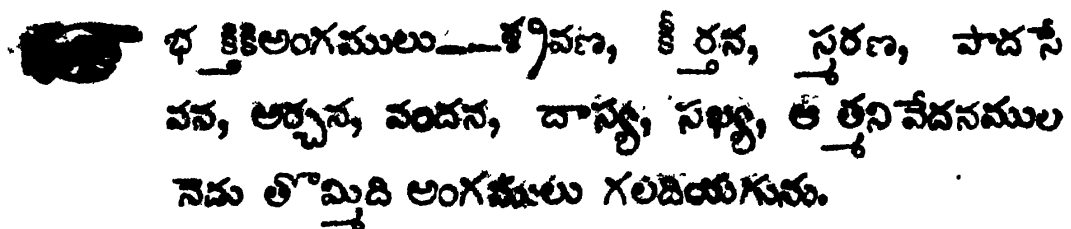 భక్తికిఅంగములు——శ్రవణ, కీర్తన, స్మరణ, పాదసే
వన, అర్చన, వందన, దాస్య, సఖ్య, ఆత్మనివేదనముల
నెడు తొమ్మిది అంగములు గలదియగును.